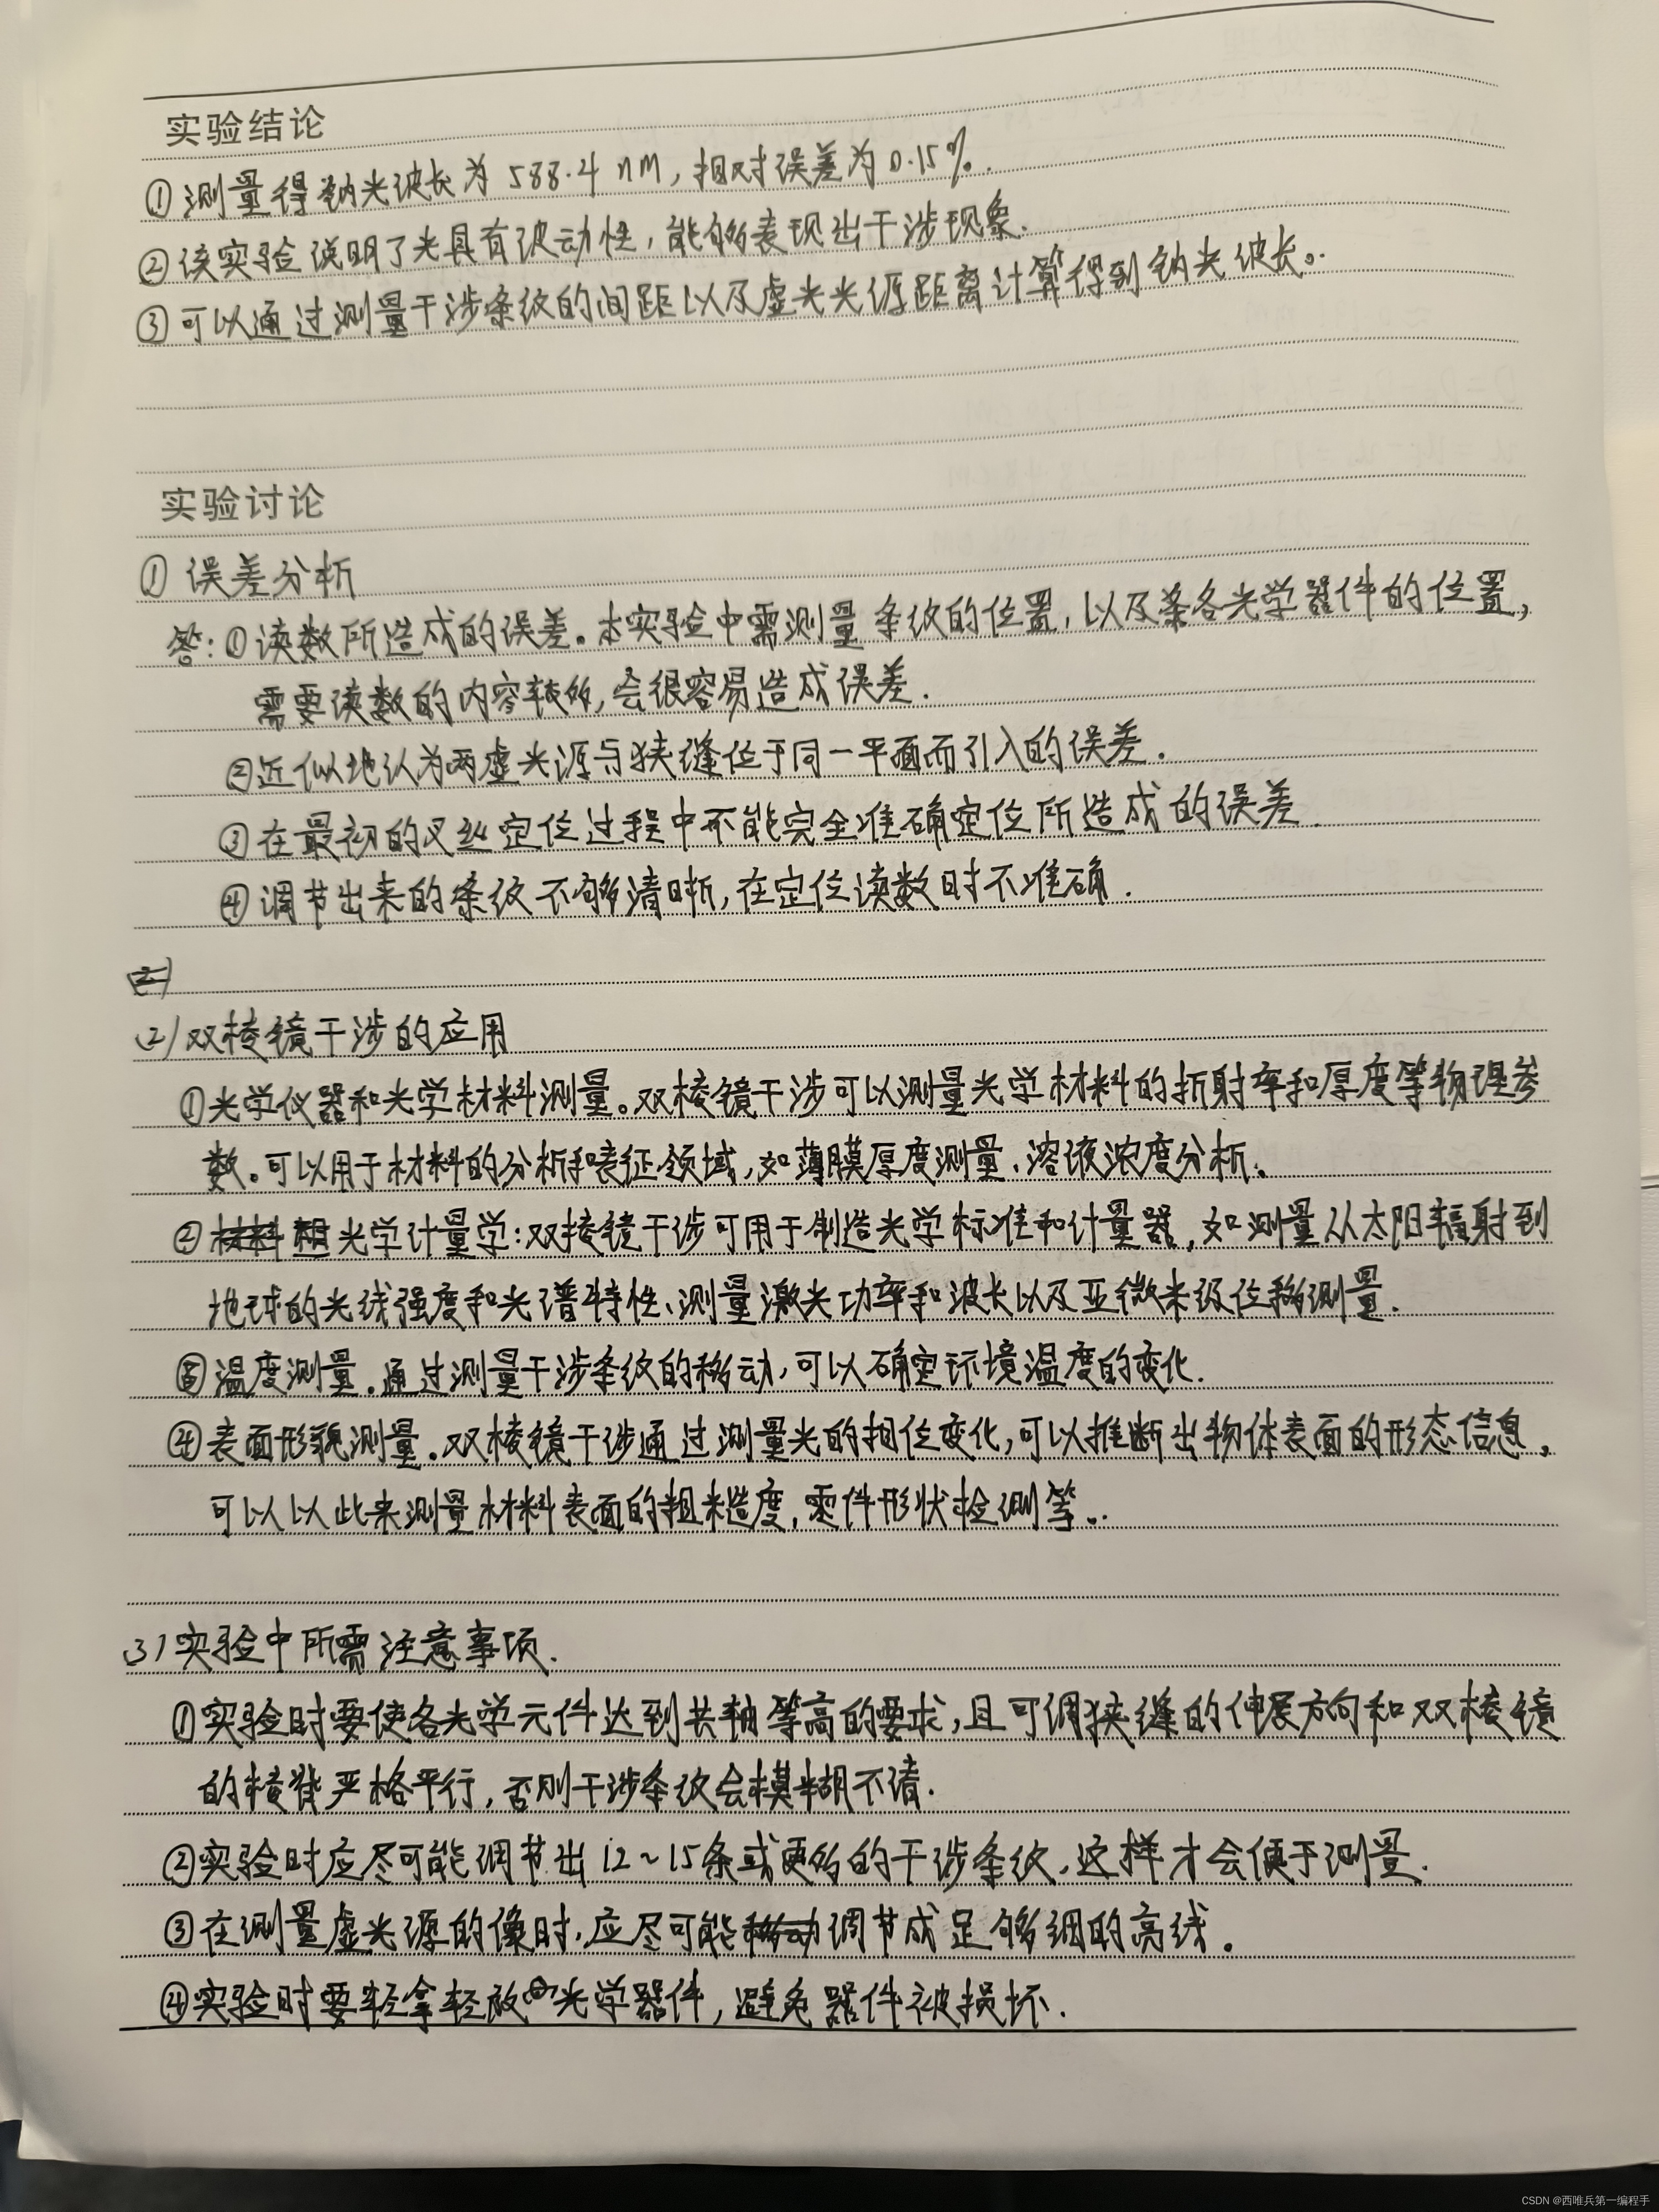 实验结论
①测量得钠光波长为588.4 nm，相对误差为0.15%.
②该实验说明了光具有波动性，能够表现出干涉现象.
③可以通过测量干涉条纹的间距以及虚光光源距离计算得到钠光波长。
实验讨论
① 误差分析
答：①读数所造成的误差。本实验中需测量条纹的位置，以及各光学器件的位置，
需要读数的内容较多，会很容易造成误差.
②近似地认为两虚光源与狭缝位于同一平面而引入的误差.
③在最初的叉丝定位过程中不能完全准确定位所造成的误差.
④调节出来的条纹不够清晰，在定位读数时不准确.
(2)双棱镜干涉的应用
①光学仪器和光学材料测量。双棱镜干涉可以测量光学材料的折射率和厚度等物理参
数。可以用于材料的分析和表征领域，如薄膜厚度测量、溶液浓度分析。
②光学计量学：双棱镜干涉可用于制造光学标准和计量器，如测量从太阳辐射到
地球的光线强度和光谱特性、测量激光功率和波长以及亚微米级位移测量.
③温度测量.通过测量干涉条纹的移动，可以确定环境温度的变化.
④表面形貌测量.双棱镜干涉通过测量光的相位变化，可以推断出物体表面的形态信息，
可以以此来测量材料表面的粗糙度，零件形状检测等..
(3)实验中所需注意事项.
①实验时要使各光学元件达到共轴等高的要求，且可调狭缝的伸展方向和双棱镜
的棱脊严格平行，否则干涉条纹会模糊不清.
②实验时应尽可能调节出12~15条或更多的干涉条纹，这样才会便于测量.
③在测量虚光源的像时，应尽可能调节成足够细的亮线。
④实验时要轻拿轻放光学器件，避免器件被损坏.
CSDN @西唯兵第一编程手